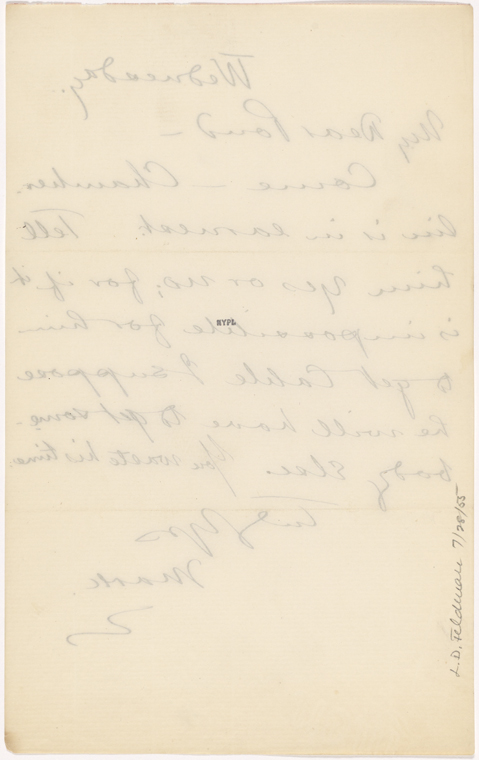 Wednesday.
My Dear Pond —
Come — Chamber
lin is in earnest. Tell
him yes or no; for if it
is impossible for him
to get Cable I suppose
he will have to get some-
body Else. You waste his time.
Yrs
Mark
NYPL
L.D. Feldman 7/28/55